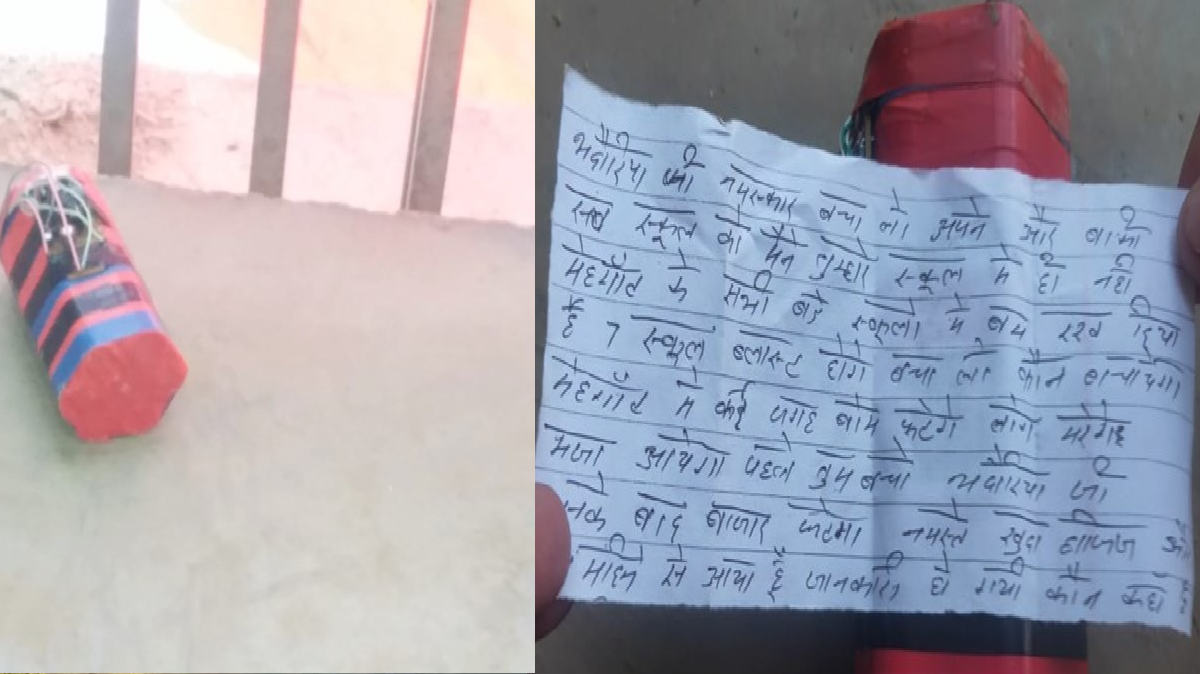 भदौरिया जी नमस्कार बचा लो अपने और बाकी
सब स्कूल को मैने तुम्हारे स्कूल मे ही नही
मेहगाँव के सभी बडे स्कूलो मे बम रख दिया
है 7 स्कूल ब्लास्ट होंगे बचा लो कौन बचायेगा
मेहगाँव मे कई जगह बोम फटेगे लोग मरेगे
मजा आयेगा पहले तुम बचो भदौरिया जी
बाद बाजार फटेगा नमस्ते खुदा हाफिज
से आया हूँ जानकारी हो गयी कौन